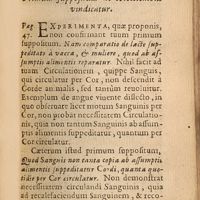 vindicatur.
Pag. EXPERIMENTA, quæ proponis,
47. non confirmant tuum primum
suppositum. Nam comparatio de lacte suppeditato
à vacca, & muliere, quod ab assumptis
alimentis reparatur. Nihil facit ad
tuam Circulationem, quippe Sanguis,
qui circulatur per Cor, non descendit à
Corde an malis, sed tantùm
Exemplum de angue vivente dissecto, in
quo agnoscere licet motum Sanguinis per
Cor, non probat necessitatem Circulationis,
quia non tantum Sanguinis ab assumptis
alimentis suppeditatur, quantum per
Cor circulatur.
Cæterum istud primum suppositum,
Quod Sanguis non tanta copia ab assumptis
alimentis suppeditatur Cordi, quanta quotidie
per Cor circulatur. Non demonstrat
necessitatem circulandi Sanguinis, quia
ad recalefaciendum Sanguinem, & reco-